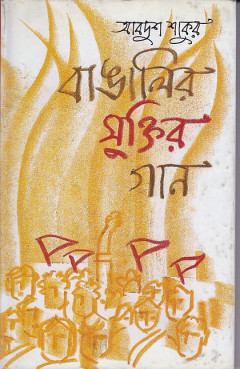 আবদুশ শাকুর
বাঙালির
মুক্তির
গান